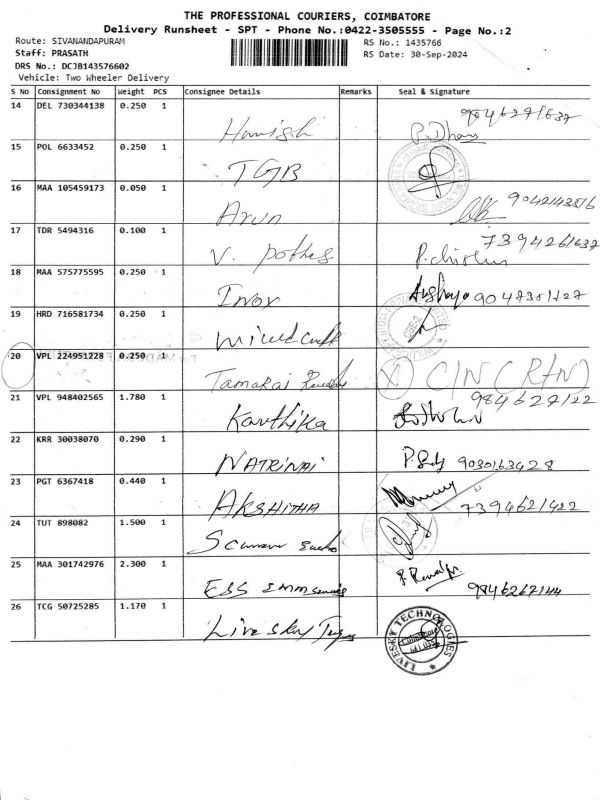 THE PROFESSIONAL COURIERS, COIMBATORE
Delivery Runsheet - SPT - Phone No.:0422-3505555 - Page No.:2
Route: SIVANANDAPURAM
RS No.: 1435766
Staff: PRASATH
RS Date: 30-Sep-2024
DRS No.: DCJB143576602
Vehicle: Two Wheeler Delivery
S No Consignment No Weight PCS Consignee Details Remarks Seal & Signature
14 DEL 730344138 0.250 1 Harrish P. Dhans
15 POL 6633452 0.250 1 TGB
16 MAA 105459173 0.050 1 Arun
17 TDR 5494316 0.100 1 V. pothes 7394261637
18 MAA 575775595 0.250 1 Inox
19 HRD 716581734 0.250 1
20 VPL 224951228 0.250 1 Tamarai (X) C/N (RTN)
21 VPL 948402565 1.780 1 Karthika 9846277122
22 KRR 30038070 0.290 1 NATRINAI 9030163428
23 PGT 6367418 0.440 1 AKSHITHA 7394621422
24 TUT 898082 1.500 1
25 MAA 301742976 2.300 1 ESS 9846262144
26 TCG 50725285 1.170 1 Live sky LIVESKY TECHNOLOGNES